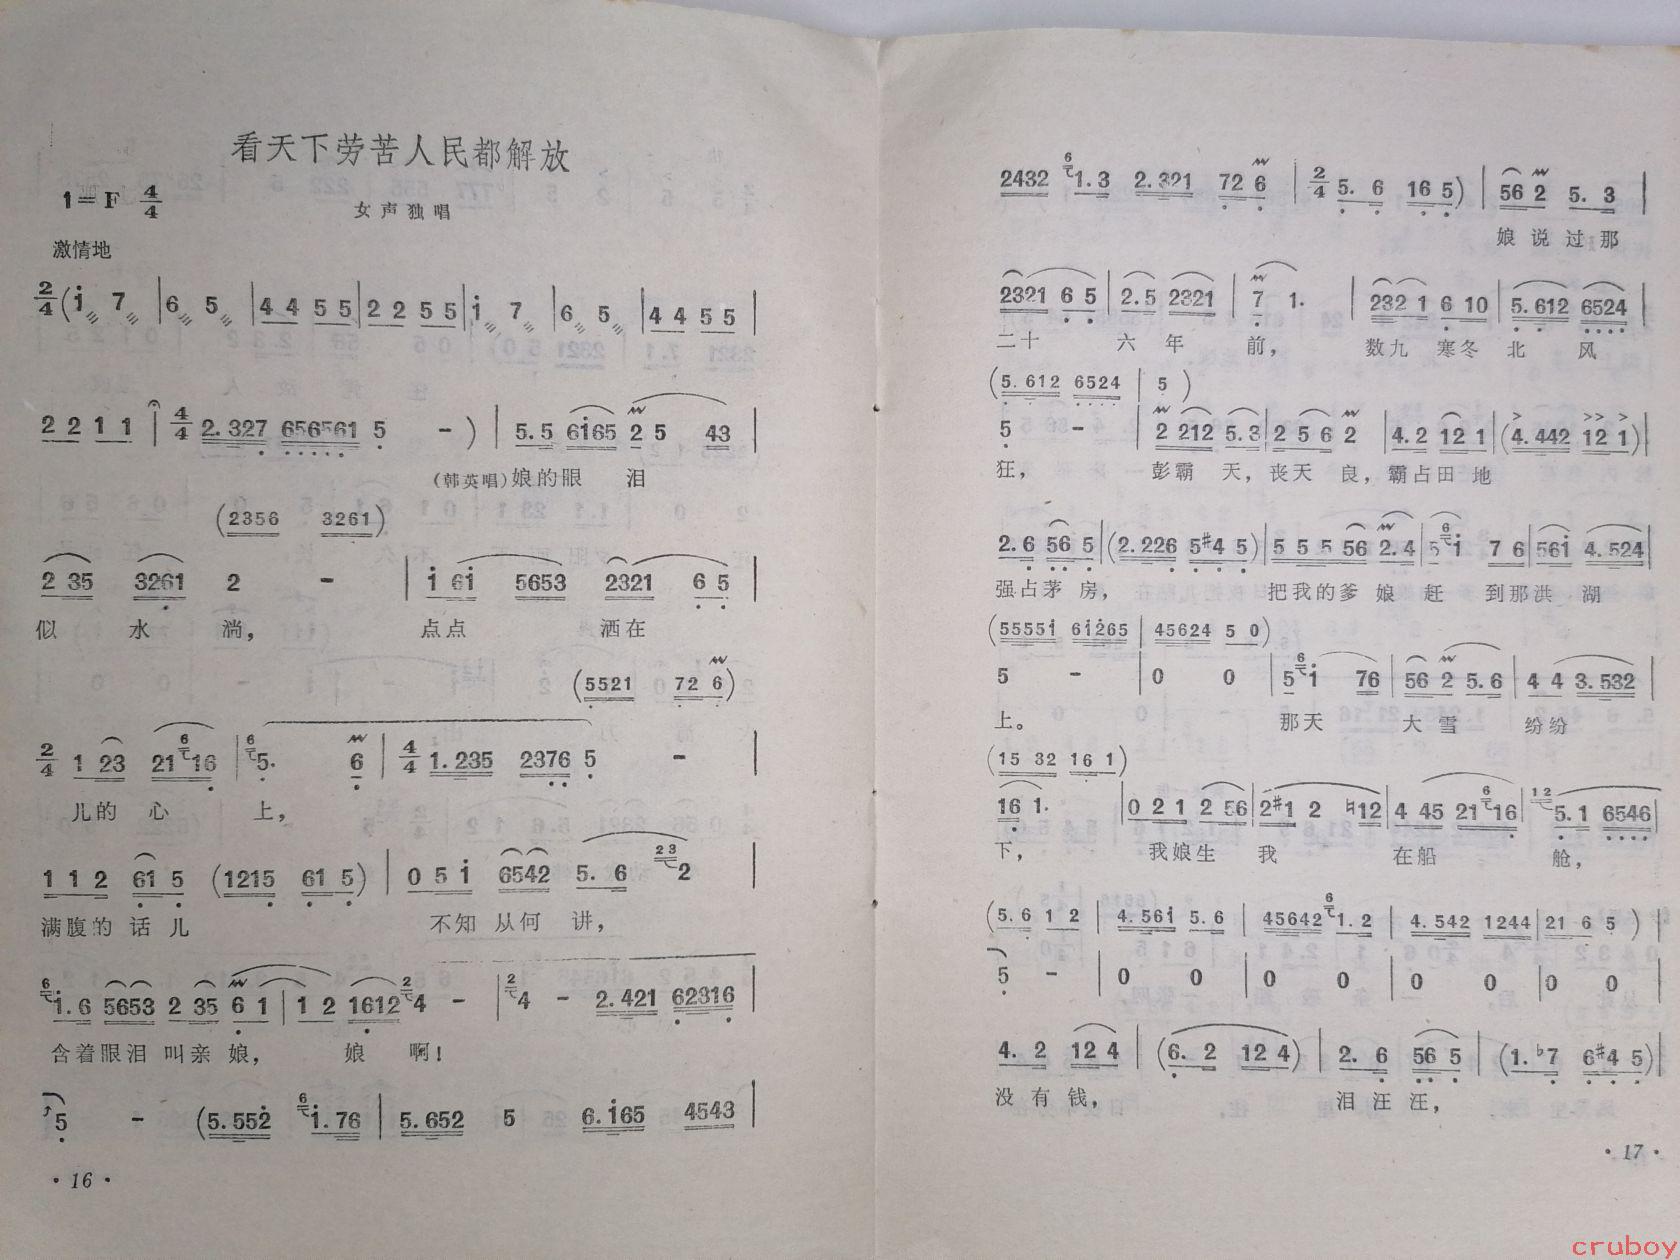 看天下劳苦人民都解放
1=F 4/4
女声独唱
激情地
2/4 (i 7 | 6 5 | 4 4 5 5 | 2 2 5 5 | i 7 | 6 5 | 4 4 5 5 |
2 2 1 1 | 4/4 2.327 656561 5 - ) | 5.5 6i65 2 5 43 |
(韩英唱)娘的眼 泪
(2356 3261)
2 35 3261 2 - | i 6i 5653 2321 6 5 |
似 水 淌, 点点 洒在
(5521 72 6)
2/4 1 23 21 6 16 | 6 5. 6 | 4/4 1.235 2376 5 - |
儿的 心 上,
1 1 2 61 5 (1215 61 5) | 0 5 i 6542 5. 6 23 2 |
满腹的 话 儿 不知 从何 讲,
6 i.6 5653 2 35 6 1 | 1 2 1612 2 4 - | 2 4 - 2.421 62316 |
含着眼泪 叫亲 娘, 娘 啊!
5 - (5.552 6 i.76 | 5.652 5 6.i65 4543 |
·16·
2432 6 1.3 2.321 72 6 | 2/4 5. 6 16 5) | 56 2 5. 3 |
娘 说 过 那
2321 6 5 | 2.5 2321 | 7 1. | 232 1 6 10 | 5.612 6524 |
二十 六 年 前, 数九 寒冬 北 风
(5.612 6524 | 5 )
5 - | 2 212 5.3 | 2 5 6 2 | 4.2 12 1 | (4.442 12 1) |
狂, 彭霸 天, 丧天 良, 霸占田 地
2.6 56 5 | (2.226 5#4 5) | 5 5 5 56 2.4 | 5 6 i 7 6 | 56i 4.524 |
强占茅 房, 把我的爹 娘 赶 到那洪 湖
(5555i 6i265 | 45624 5 0)
5 - | 0 0 | 5 6 i 76 | 56 2 5.6 | 4 4 3.532 |
上。 那天 大 雪 纷纷
(15 32 16 1)
16 1. | 0 2 1 2 56 | 2#1 2 ♮12 | 4 45 21 6 16 | 12 5.1 6546 |
下, 我娘生 我 在船 舱,
(5.6 1 2 | 4.56i 5.6 | 45642 6 1.2 | 4.542 1244 | 21 6 5 ) |
5 - | 0 0 | 0 0 | 0 0 | 0 0 |
4. 2 12 4 | (6. 2 12 4) | 2. 6 56 5 | (1.♭7 6#4 5) |
没 有 钱, 泪 汪 汪,
·17·
cruboy